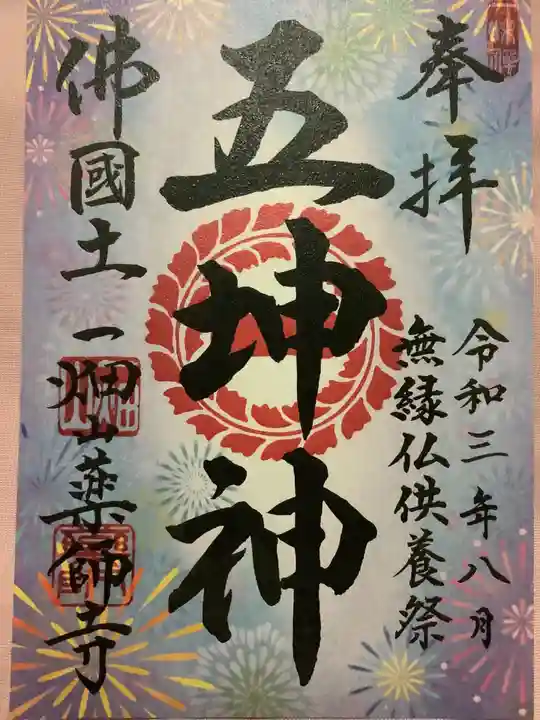 奉拝
令和三年八月
無縁仏供養祭
五坤神
佛國土
一畑山薬師寺